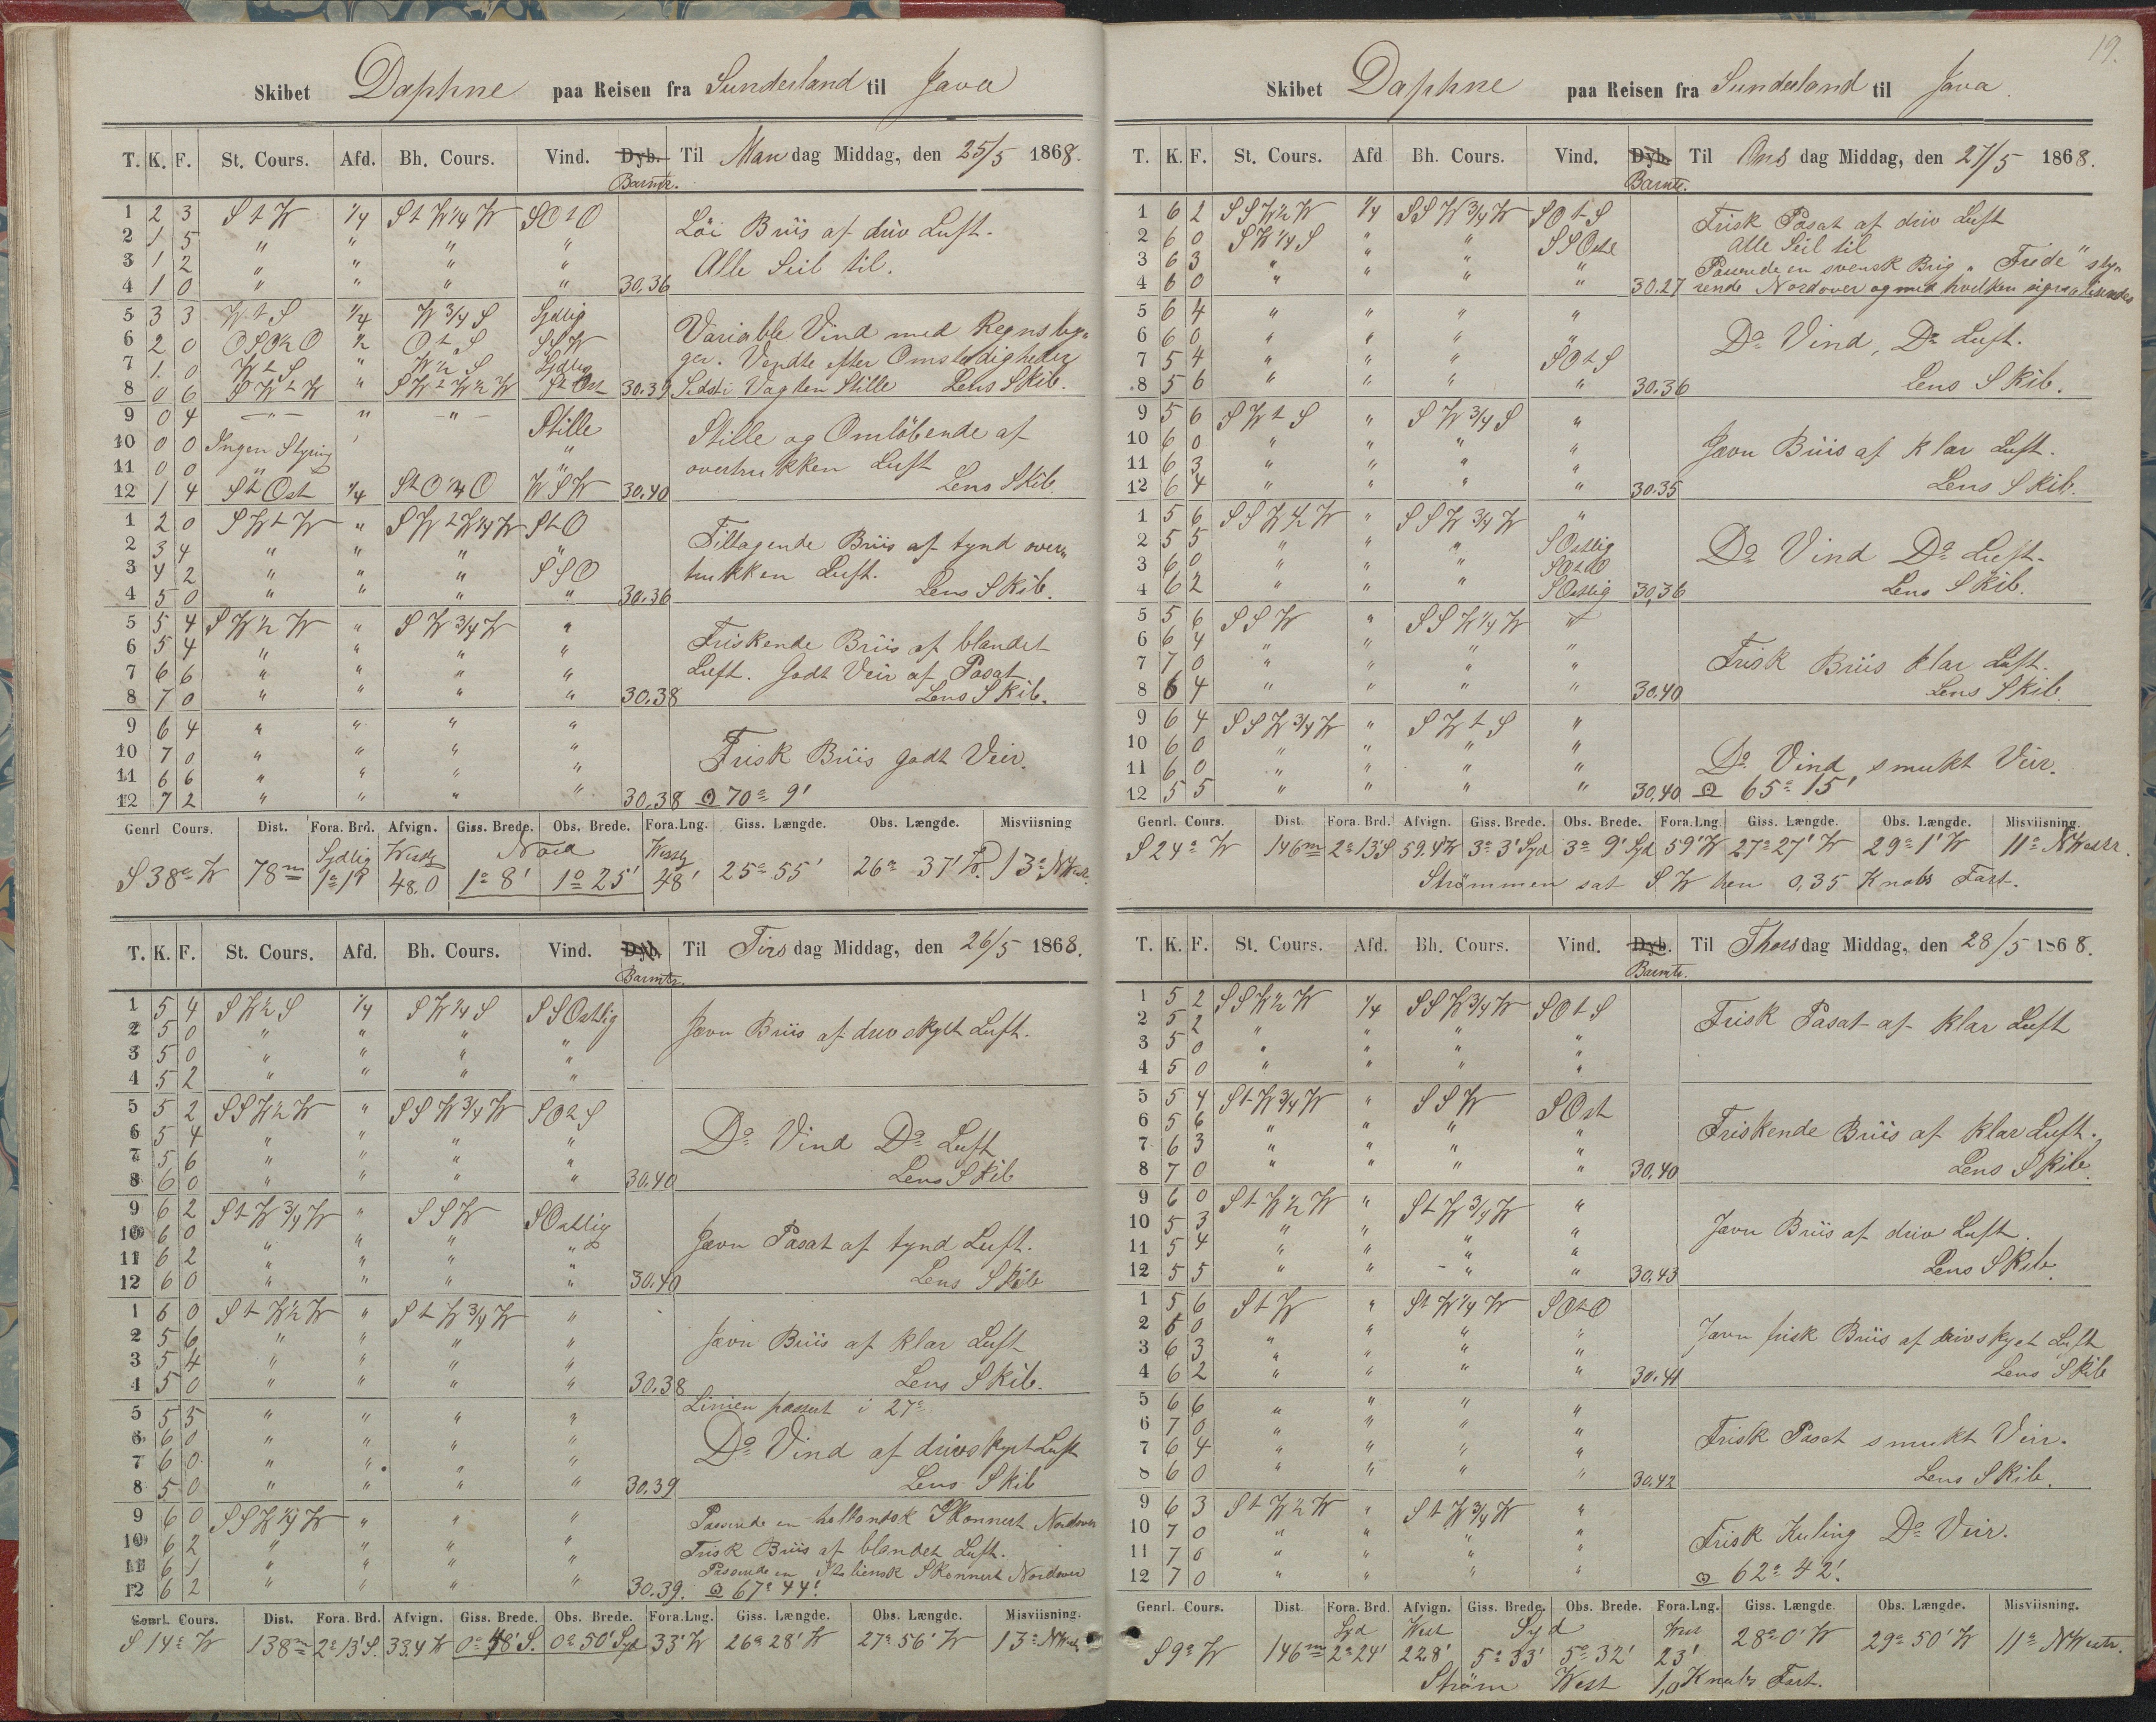 Skibet Daphne paa Reisen fra Sunderland til Java
T. K. F. St. Cours. Afd. Bh. Cours. Vind. Dyb. Til Mandag Middag, den 25/5 1868.
Barmtr.
1 2 3 S t W 1/4 S t W 1/4 W SO t O Löi Briis af driv Luft.
2 1 5 " " " "
3 1 2 " " " " Alle Seil til.
4 1 0 " " " " 30.36
5 3 3 W t S 1/4 W 3/4 S Sydlig Variable Vind med Regnsbyg„
6 2 0 OSO 1/2 O 1/2 O t S SSW ger. Vendte efter Omstædigheder
7 1 0 W t S " W 1/2 S Sydlig
8 0 6 SW t W " SW t W 1/2 W S t Ost 30.39 Sidst i Vagten Stille Lens Skib.
9 0 4 — " — " — " — Stille Stille og Omlöbende af
10 0 0 Ingen Styring "
11 0 0 " " overtrukken Luft
12 1 4 S t Ost 1/4 S t O 1/4 O WSW 30.40 Lens Skib.
1 2 0 SW t W " SW t W 1/4 W S t O Tiltagende Briis af tynd over„
2 3 4 " " " "
3 4 2 " " " SSO trukken Luft.
4 5 0 " " " " 30.36 Lens Skib.
5 5 4 SW 1/2 W " SW 3/4 W " Friskende Briis af blandet
6 5 4 " " " "
7 6 6 " " " " Luft. Godt Veir af Pasat
8 7 0 " " " " 30.38 Lens Skib.
9 6 4 " " " "
10 7 0 " " " " Frisk Briis godt Veir.
11 6 6 " " " "
12 7 2 " " " " 30.38 70° 9'
Genrl Cours. Dist. Fora. Brd. Afvign. Giss. Brede. Obs. Brede. Fora.Lng. Giss. Længde. Obs. Længde. Misviisning
Sydlig Westlg Nord Westlg
S 38° W 78m 1° 1' 48.0 1° 8' 1° 25' 48' 25° 55' 26° 37' W. 13° NWestr.
T. K. F. St. Cours. Afd. Bh. Cours. Vind. Dyb. Til Tirsdag Middag, den 26/5 1868.
Barmtr.
1 5 4 SW 1/2 S 1/4 SW 1/4 S SSOstlig Jævn Briis af drivskyet Luft.
2 5 0 " " " "
3 5 0 " " " "
4 5 2 " " " "
5 5 2 SSW 1/2 W " SSW 3/4 W SO t S
6 5 4 " " " " Do Vind Do Luft
7 5 6 " " " "
8 6 0 " " " " 30.40 Lens Skib
9 6 2 S t W 3/4 W " SSW SOstlig
10 6 0 " " " " Jævn Pasat af tynd Luft.
11 6 2 " " " "
12 6 0 " " " " 30.40 Lens Skib
1 6 0 S t W 1/2 W " S t W 3/4 W "
2 5 6 " " " " Jævn Briis af klar Luft
3 5 4 " " " "
4 5 0 " " " " 30.38 Lens Skib.
5 5 5 " " " " Linien passert i 27°
6 6 0 " " " " Do Vind af drivskyet Luft
7 6 0 " " " "
8 5 0 " " " " 30.39 Lens Skib
9 6 0 SSW 1/4 W " " " Passerede en hollandsk Skonnert Nordover
10 6 2 " " " " Frisk Briis af blandet Luft.
11 6 1 " " " " Passerede en Italiensk Skonnert Nordover
12 6 2 " " " " 30.39. 67° 44'.
Genrl. Cours. Dist. Fora. Brd. Afvign. Giss. Brede. Obs. Brede. Fora.Lng. Giss. Længde. Obs. Længde. Misviisning.
S 14° W 138m 2° 13' S. 33.4 W 0° 48' S. 0° 50' Syd 33' W 26° 28' W 27° 56' W 13° NWestr.
19.
Skibet Daphne paa Reisen fra Sunderland til Java.
T. K. F. St. Cours. Afd Bh. Cours. Vind. Dyb. Til Onsdag Middag, den 27/5 1868.
Barmtr.
1 6 2 SSW 1/2 W 1/4 SSW 3/4 W SO t S Frisk Pasat af driv Luft
2 6 0 SW 1/4 S " " SSOst Alle Seil til
3 6 3 " " " " Passerede en svensk Brig „Frede" sty„
4 6 0 " " " " 30.27 rende Nordover og med hvilken signaliseredes
5 6 4 " " " "
6 6 0 " " " " Do Vind, Do Luft.
7 5 4 " " " SO t S
8 5 6 " " " " 30.36 Lens Skib.
9 5 6 SW t S " SW 3/4 S "
10 6 0 " " " " Jævn Briis af klar Luft.
11 6 3 " " " "
12 6 4 " " " " 30.35 Lens Skib.
1 5 6 SSW 1/2 W " SSW 3/4 W "
2 5 5 " " " SOstlig Do Vind Do Luft.
3 6 0 " " " SO t O
4 6 2 " " " SOstlig 30.36 Lens Skib.
5 5 6 SSW " SSW 1/4 W "
6 6 4 " " " "
7 7 0 " " " " Frisk Briis klar Luft.
8 6 4 " " " " 30.40 Lens Skib.
9 6 4 SSW 3/4 W " SW t S "
10 6 0 " " " "
11 6 0 " " " " Do Vind smukt Veir.
12 5 5 " " " " 30.40 65° 15'
Genrl. Cours. Dist Fora. Brd. Afvign. Giss. Brede. Obs. Brede. Fora.Lng Giss. Længde. Obs. Længde. Misviisning.
S 24° W 146m 2° 13' S 59.4 W 3° 3' Syd 3° 9' Syd 59' W 27° 27' W 29° 1' W 11° NWestr.
Strömmen sat SW hen 0,35 Knobs Fart.
T. K. F. St. Cours. Afd. Bh. Cours. Vind. Dyb. Til Thorsdag Middag, den 28/5 1868.
Barmtr.
1 5 2 SSW 1/2 W 1/4 SSW 3/4 W SO t S Frisk Pasat af klar Luft
2 5 2 " " " "
3 5 0 " " " "
4 5 0 " " " "
5 5 4 S t W 3/4 W " SSW SOst
6 5 6 " " " " Friskende Briis af klar Luft.
7 6 3 " " " "
8 7 0 " " " " 30.40 Lens Skib.
9 6 0 S t W 1/2 W " S t W 3/4 W "
10 5 3 " " " " Jævn Briis af driv Luft.
11 5 4 " " " "
12 5 5 " " " " 30.43 Lens Skib.
1 5 6 S t W " S t W 1/4 W SO t O
2 6 0 " " " " Jævn frisk Briis af drivskyet Luft
3 6 3 " " " "
4 6 2 " " " " 30.41 Lens Skib
5 6 6 " " " "
6 7 0 " " " " Frisk Pasat smukt Veir.
7 6 4 " " " "
8 6 0 " " " " 30.42 Lens Skib.
9 6 3 S t W 1/2 W " S t W 3/4 W "
10 7 0 " " " " Frisk Kuling Do Veir.
11 7 0 " " " "
12 7 0 " " " " 62° 42'.
Genrl. Cours. Dist Fora. Brd. Afvign. Giss. Brede. Obs. Brede. Fora.Lng. Giss. Længde. Obs. Længde. Misviisning.
Syd West Syd West
S 9° W 146m 2° 24' 22.8' 5° 33' 5° 32' 23' 28° 0' W 29° 50' W 11° NWestr.
Ström West 1,0 Knobs Fart.